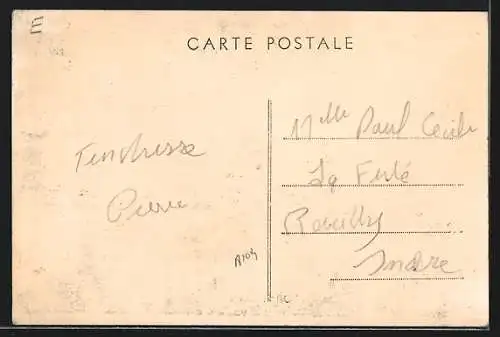 E
CARTE POSTALE
Tendresse
Pierre
Mlle Paul Cécile
La Ferté
Reuilly
Indre
A104